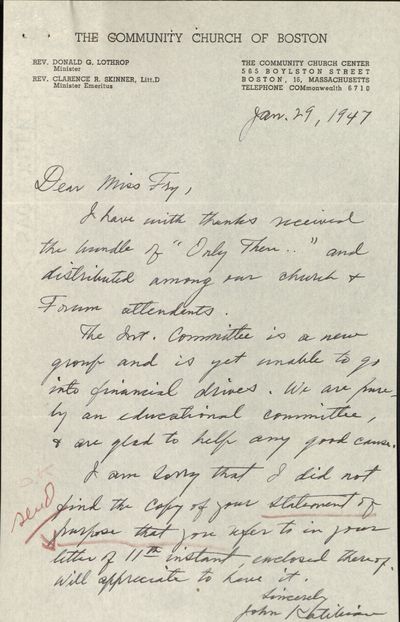 THE COMMUNITY CHURCH OF BOSTON
REV. DONALD G. LOTHROP
Minister
REV. CLARENCE R. SKINNER, Litt.D
Minister Emeritus
THE COMMUNITY CHURCH CENTER
565 BOYLSTON STREET
BOSTON, 16, MASSACHUSETTS
TELEPHONE COMmonwealth 6710
Jan. 29, 1947
Dear Miss Fry,
I have with thanks received
the bundle of "Only Then.." and
distributed among our church &
Forum attendents.
The Int. Committee is a new
group and is yet unable to go
into financial drives. We are pure-
ly an educational committee,
& are glad to help any good cause.
I am sorry that I did not
find the copy of your statement of
purpose that you refer to in your
letter of 11th instant, enclosed thereof.
Will appreciate to have it.
Sincerely
John
send